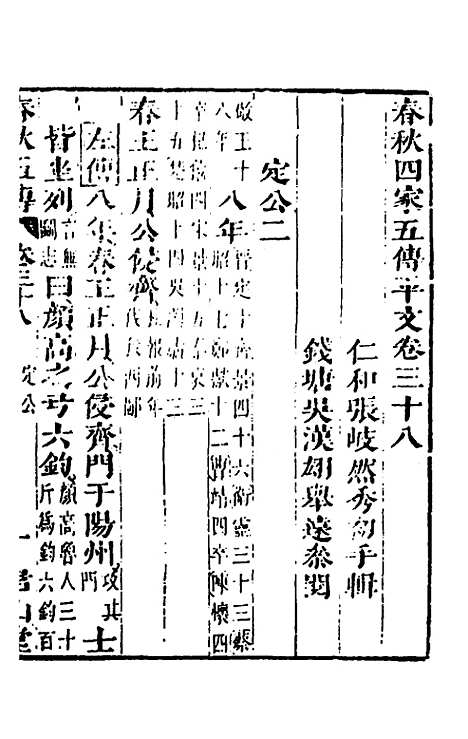 春秋四家五傳平文卷三十八
仁和張岐然秀初手輯
錢塘吳漢翊舉遠參閱
定公二
敬王十八年
八年晉定十齊景四十六衛靈三十三蔡
昭十七鄭獻十二曹靖四卒陳懷四
卒杞僖四宋景十五秦哀三
十五楚昭十四吳闔廬十三
春王正月公侵齊報前年伐我西鄙
左傳八年春王正月公侵齊門于陽州攻其門士
皆坐列言無鬬志曰顏高之弓六鈞顏高魯人三十斤爲鈞六鈞百
春秋五傳 卷三十八 定公 一